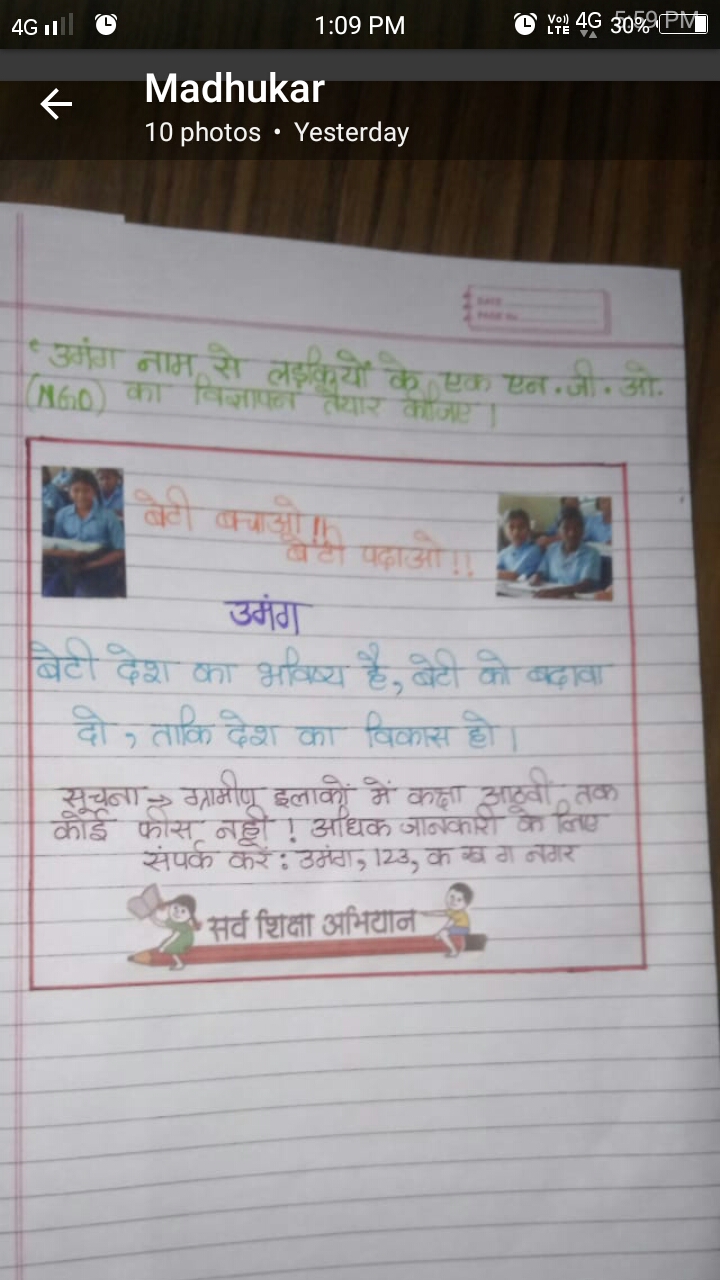 4G 1:09 PM Vo)) LTE 4G 30% 5:59 PM
Madhukar
10 photos • Yesterday
DATE
PAGE No.
उमंग नाम से लड़कियों के एक एन.जी.ओ.
(NGO) का विज्ञापन तैयार कीजिए।
बेटी बचाओ!!
बेटी पढ़ाओ!!
उमंग
बेटी देश का भविष्य है, बेटी को बढ़ावा
दो, ताकि देश का विकास हो।
सूचना → ग्रामीण इलाकों में कक्षा आठवीं तक
कोई फीस नहीं! अधिक जानकारी के लिए
संपर्क करें: उमंग, 123, क ख ग नगर
सर्व शिक्षा अभियान